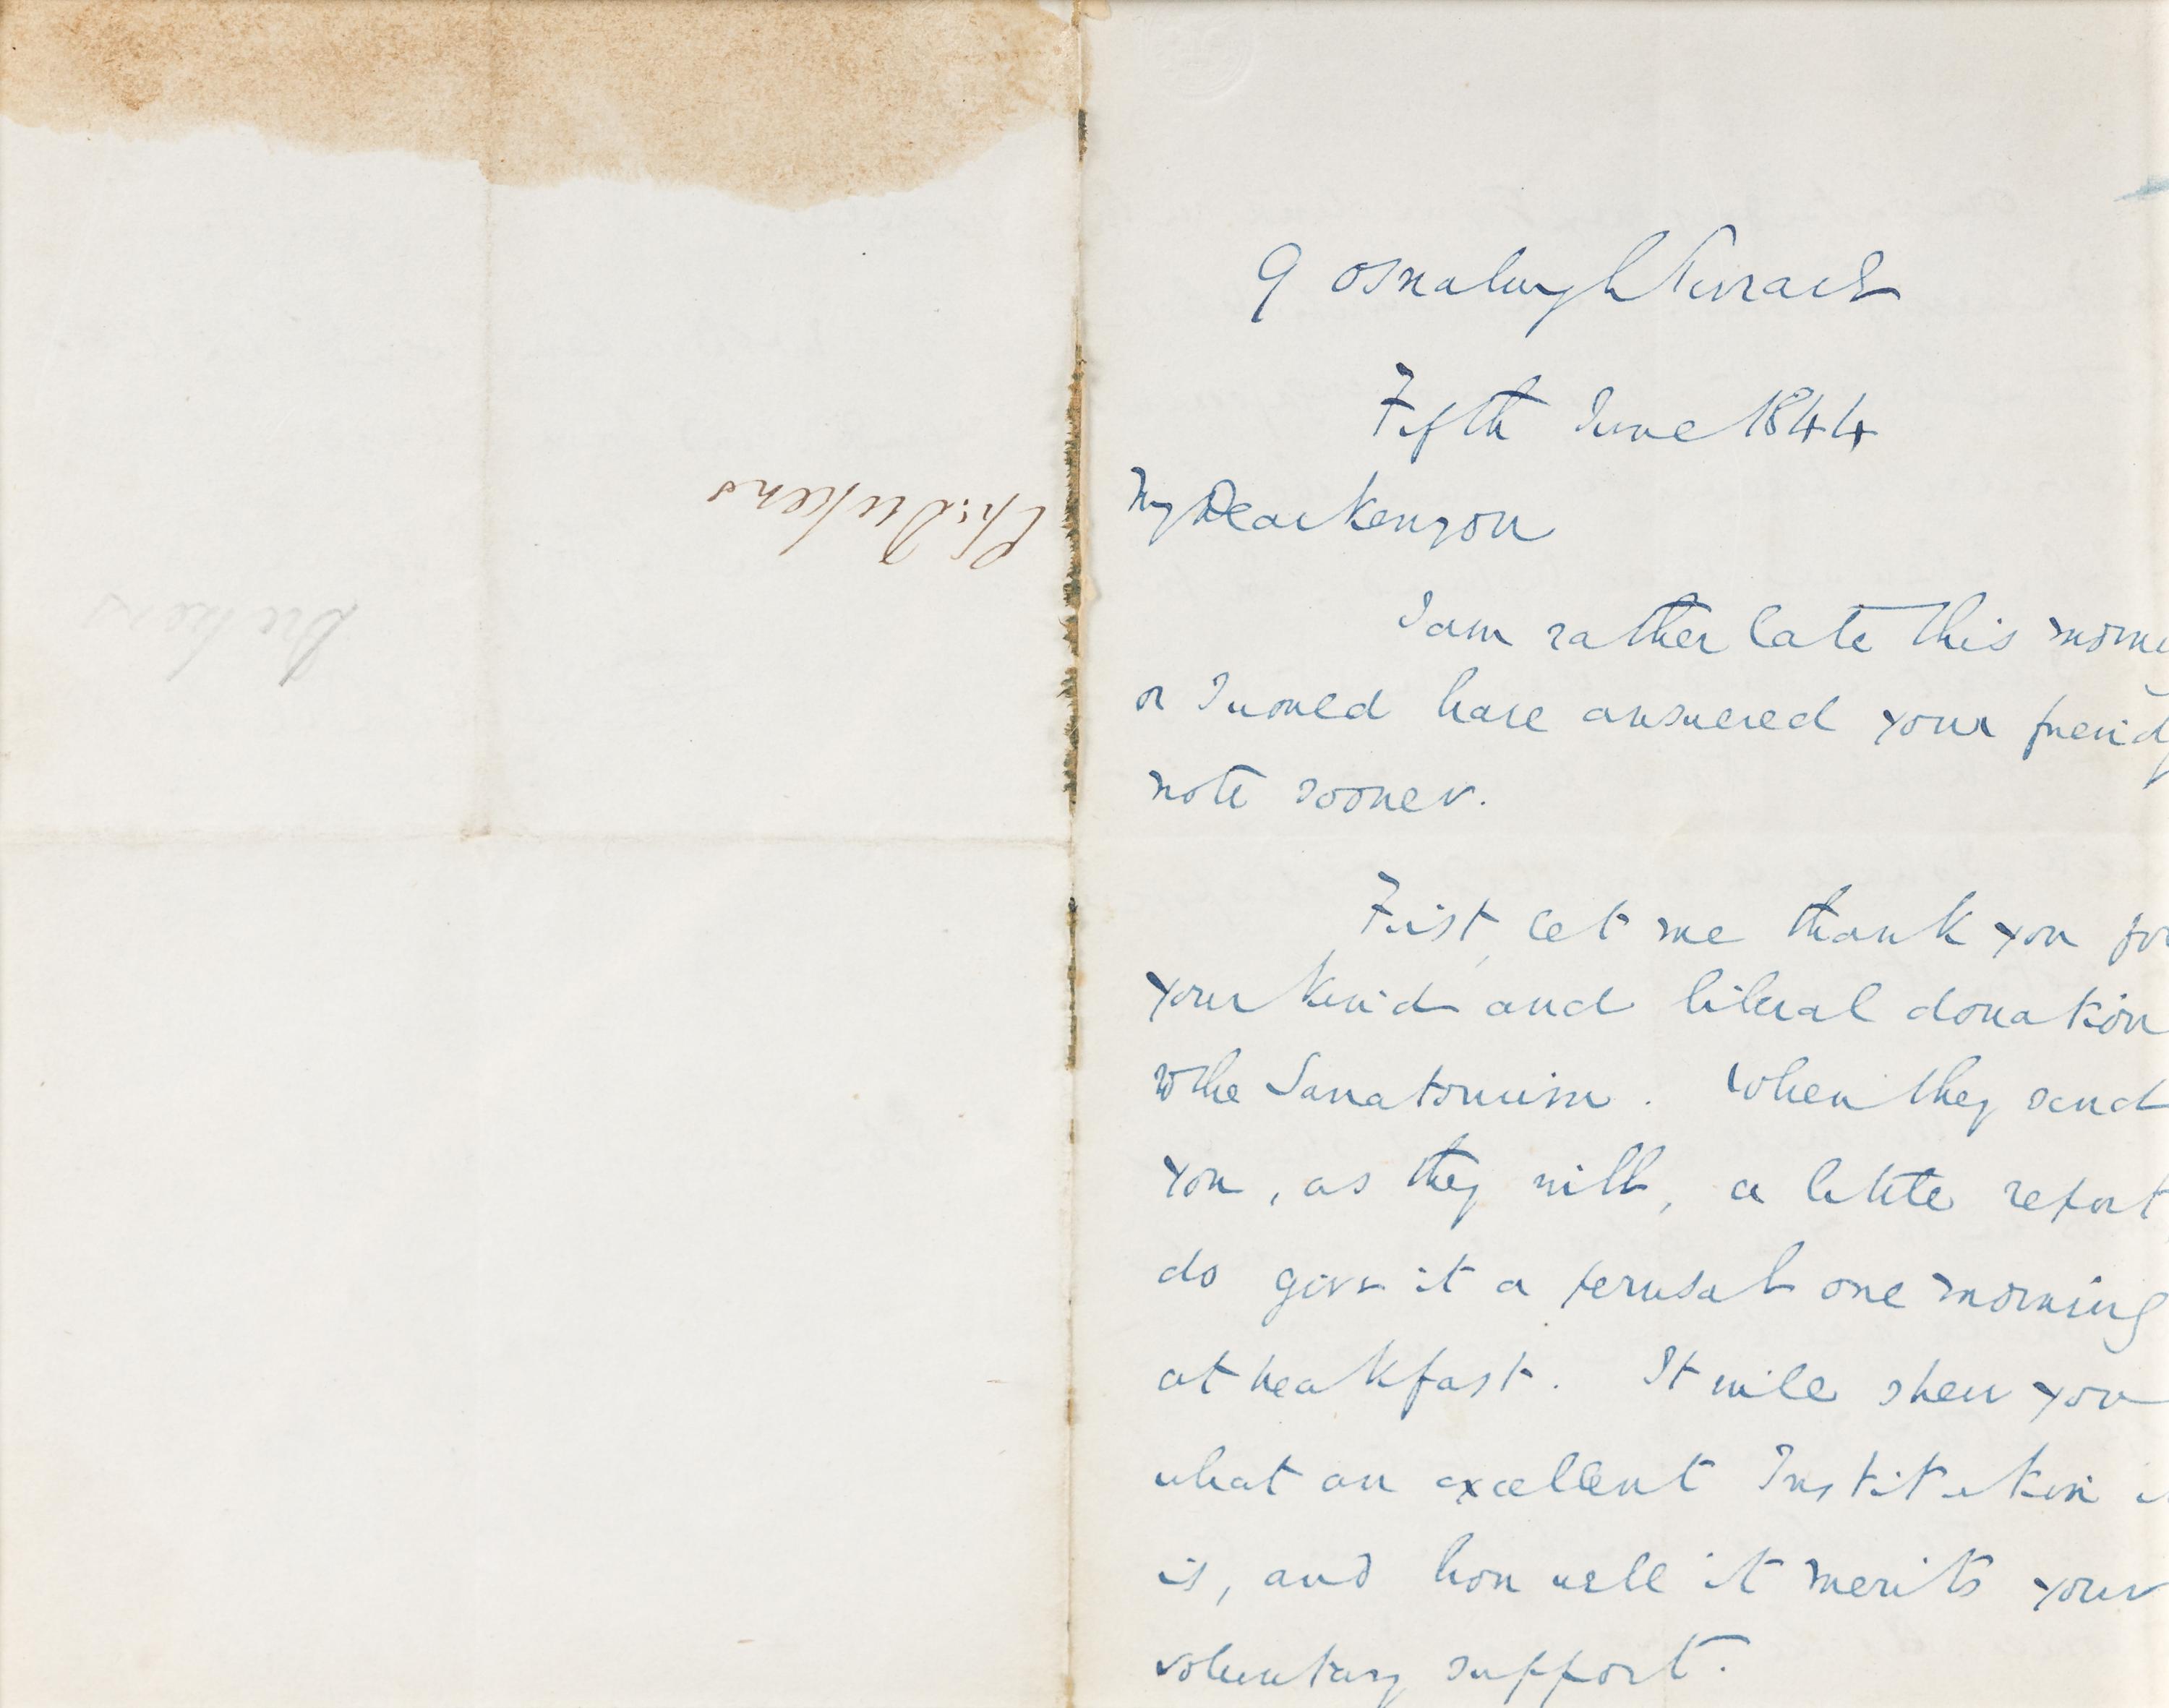 Chs: Dickens
Dickens
9 Osnaburgh Terrace
Fifth June 1844
My Dear Kenyon
I am rather late this morning
or I would have answered your friendly
note sooner.
First, let me thank you for
your kind and liberal donation
to the Sanatorium. When they send
you, as they will, a little report,
do give it a perusal one morning
at breakfast. It will shew you
what an excellent Institution it
is, and how well it merits your
voluntary support.